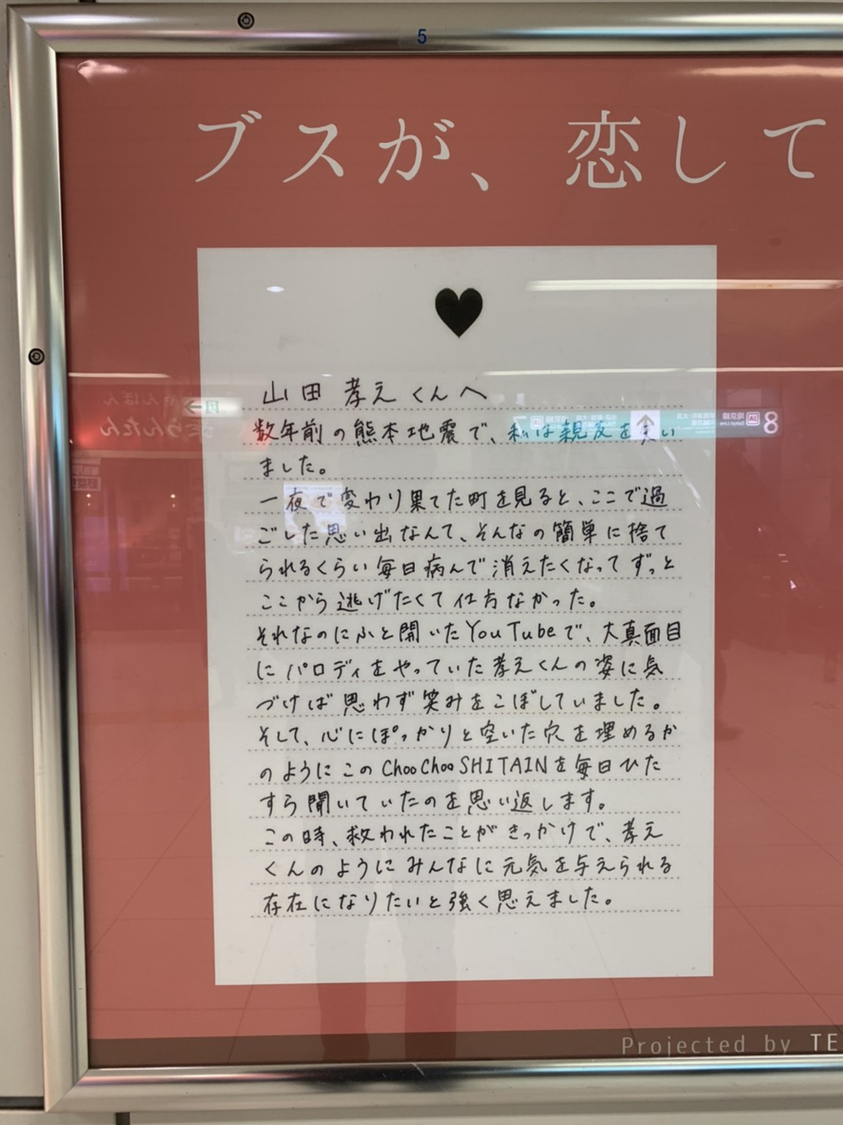 5
ブスが、恋して
山田孝えくんへ
数年前の熊本地震で、私は親友を失い
ました。
一夜で変わり果てた町を見ると、ここで過
ごした思い出なんて、そんなの簡単に捨て
られるくらい毎日病んで消えたくなってずっと
ここから逃げたくて仕方なかった。
それなのにふと開いたYouTubeで、大真面目
にパロディをやっていた孝えくんの姿に気
づけば思わず笑みをこぼしていました。
そして、心にぽっかりと空いた穴を埋めるか
のようにこのChooChooSHITAINを毎日ひた
すら聞いていたのを思い返します。
この時、救われたことがきっかけで、孝え
くんのようにみんなに元気を与えられる
存在になりたいと強く思えました。
Projected by TE
8